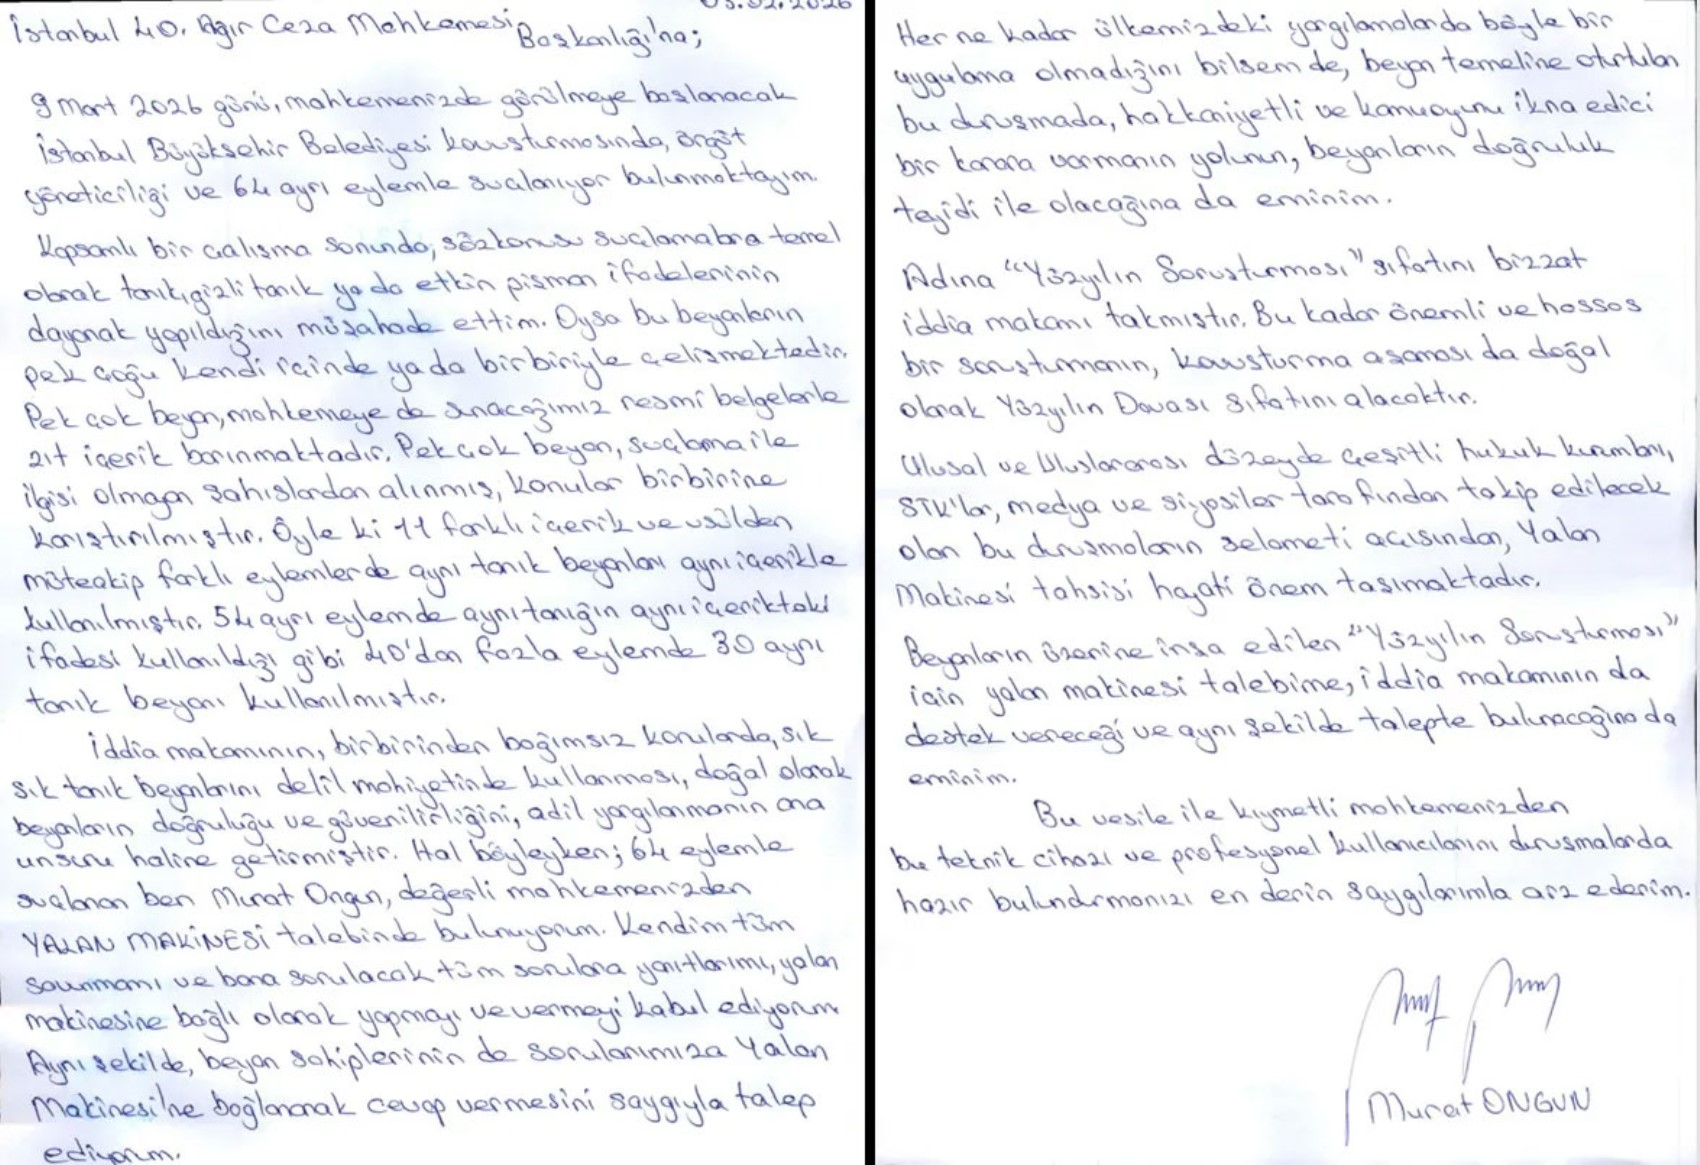 03.02.2026
İstanbul 40. Ağır Ceza Mahkemesi Başkanlığı'na;
9 Mart 2026 günü, mahkemenizde görülmeye başlanacak
İstanbul Büyükşehir Belediyesi kovuşturmasında, örgüt
yöneticiliği ve 64 ayrı eylemle suçlanıyor bulunmaktayım.
Kapsamlı bir çalışma sonunda, sözkonusu suçlamalara temel
olarak tanık, gizli tanık ya da etkin pişman ifadelerinin
dayanak yapıldığını müşahade ettim. Oysa bu beyanların
pek çoğu kendi içinde ya da birbiriyle çelişmektedir.
Pek çok beyan, mahkemeye de sunacağımız resmi belgelerle
zıt içerik barınmaktadır. Pek çok beyan, suçlama ile
ilgisi olmayan şahıslardan alınmış, konular birbirine
karıştırılmıştır. Öyle ki 11 farklı içerik ve usülden
müteakip farklı eylemlerde aynı tanık beyanları aynı içerikle
kullanılmıştır. 54 ayrı eylemde aynı tanığın aynı içerikteki
ifadesi kullanıldığı gibi 40'dan fazla eylemde 30 aynı
tanık beyanı kullanılmıştır.
İddia makamının, birbirinden bağımsız konularda, sık
sık tanık beyanlarını delil mahiyetinde kullanması, doğal olarak
beyanların doğruluğu ve güvenilirliğini, adil yargılanmanın ana
unsuru haline getirmiştir. Hal böyleyken; 64 eylemle
suçlanan ben Murat Ongun, değerli mahkemenizden
YALAN MAKİNESİ talebinde bulunuyorum. Kendim tüm
savunmamı ve bana sorulacak tüm sorulara yanıtlarımı, yalan
makinesine bağlı olarak yapmayı ve vermeyi kabul ediyorum
Aynı şekilde, beyan sahiplerinin de sorularımıza Yalan
Makinesi'ne bağlanarak cevap vermesini saygıyla talep
ediyorum.
Her ne kadar ülkemizdeki yargılamalarda böyle bir
uygulama olmadığını bilsem de, beyan temeline oturtulan
bu duruşmada, hakkaniyetli ve kamuoyunu ikna edici
bir karara varmanın yolunun, beyanların doğruluk
teyidi ile olacağına da eminim.
Adına "Yüzyılın Soruşturması" sıfatını bizzat
iddia makamı takmıştır. Bu kadar önemli ve hassas
bir soruşturmanın, kovuşturma aşaması da doğal
olarak Yüzyılın Davası sıfatını alacaktır.
Ulusal ve Uluslararası düzeyde çeşitli hukuk kurumları,
STK'lar, medya ve siyasiler tarafından takip edilecek
olan bu duruşmaların selameti açısından, Yalan
Makinesi tahsisi hayati önem taşımaktadır.
Beyanların üzerine inşa edilen "Yüzyılın Soruşturması"
için yalan makinesi talebime, iddia makamının da
destek vereceği ve aynı şekilde talepte bulunacağına da
eminim.
Bu vesile ile kıymetli mahkemenizden
bu teknik cihazı ve profesyonel kullanıcılarını duruşmalarda
hazır bulundurmanızı en derin saygılarımla arz ederim.
Murat ONGUN